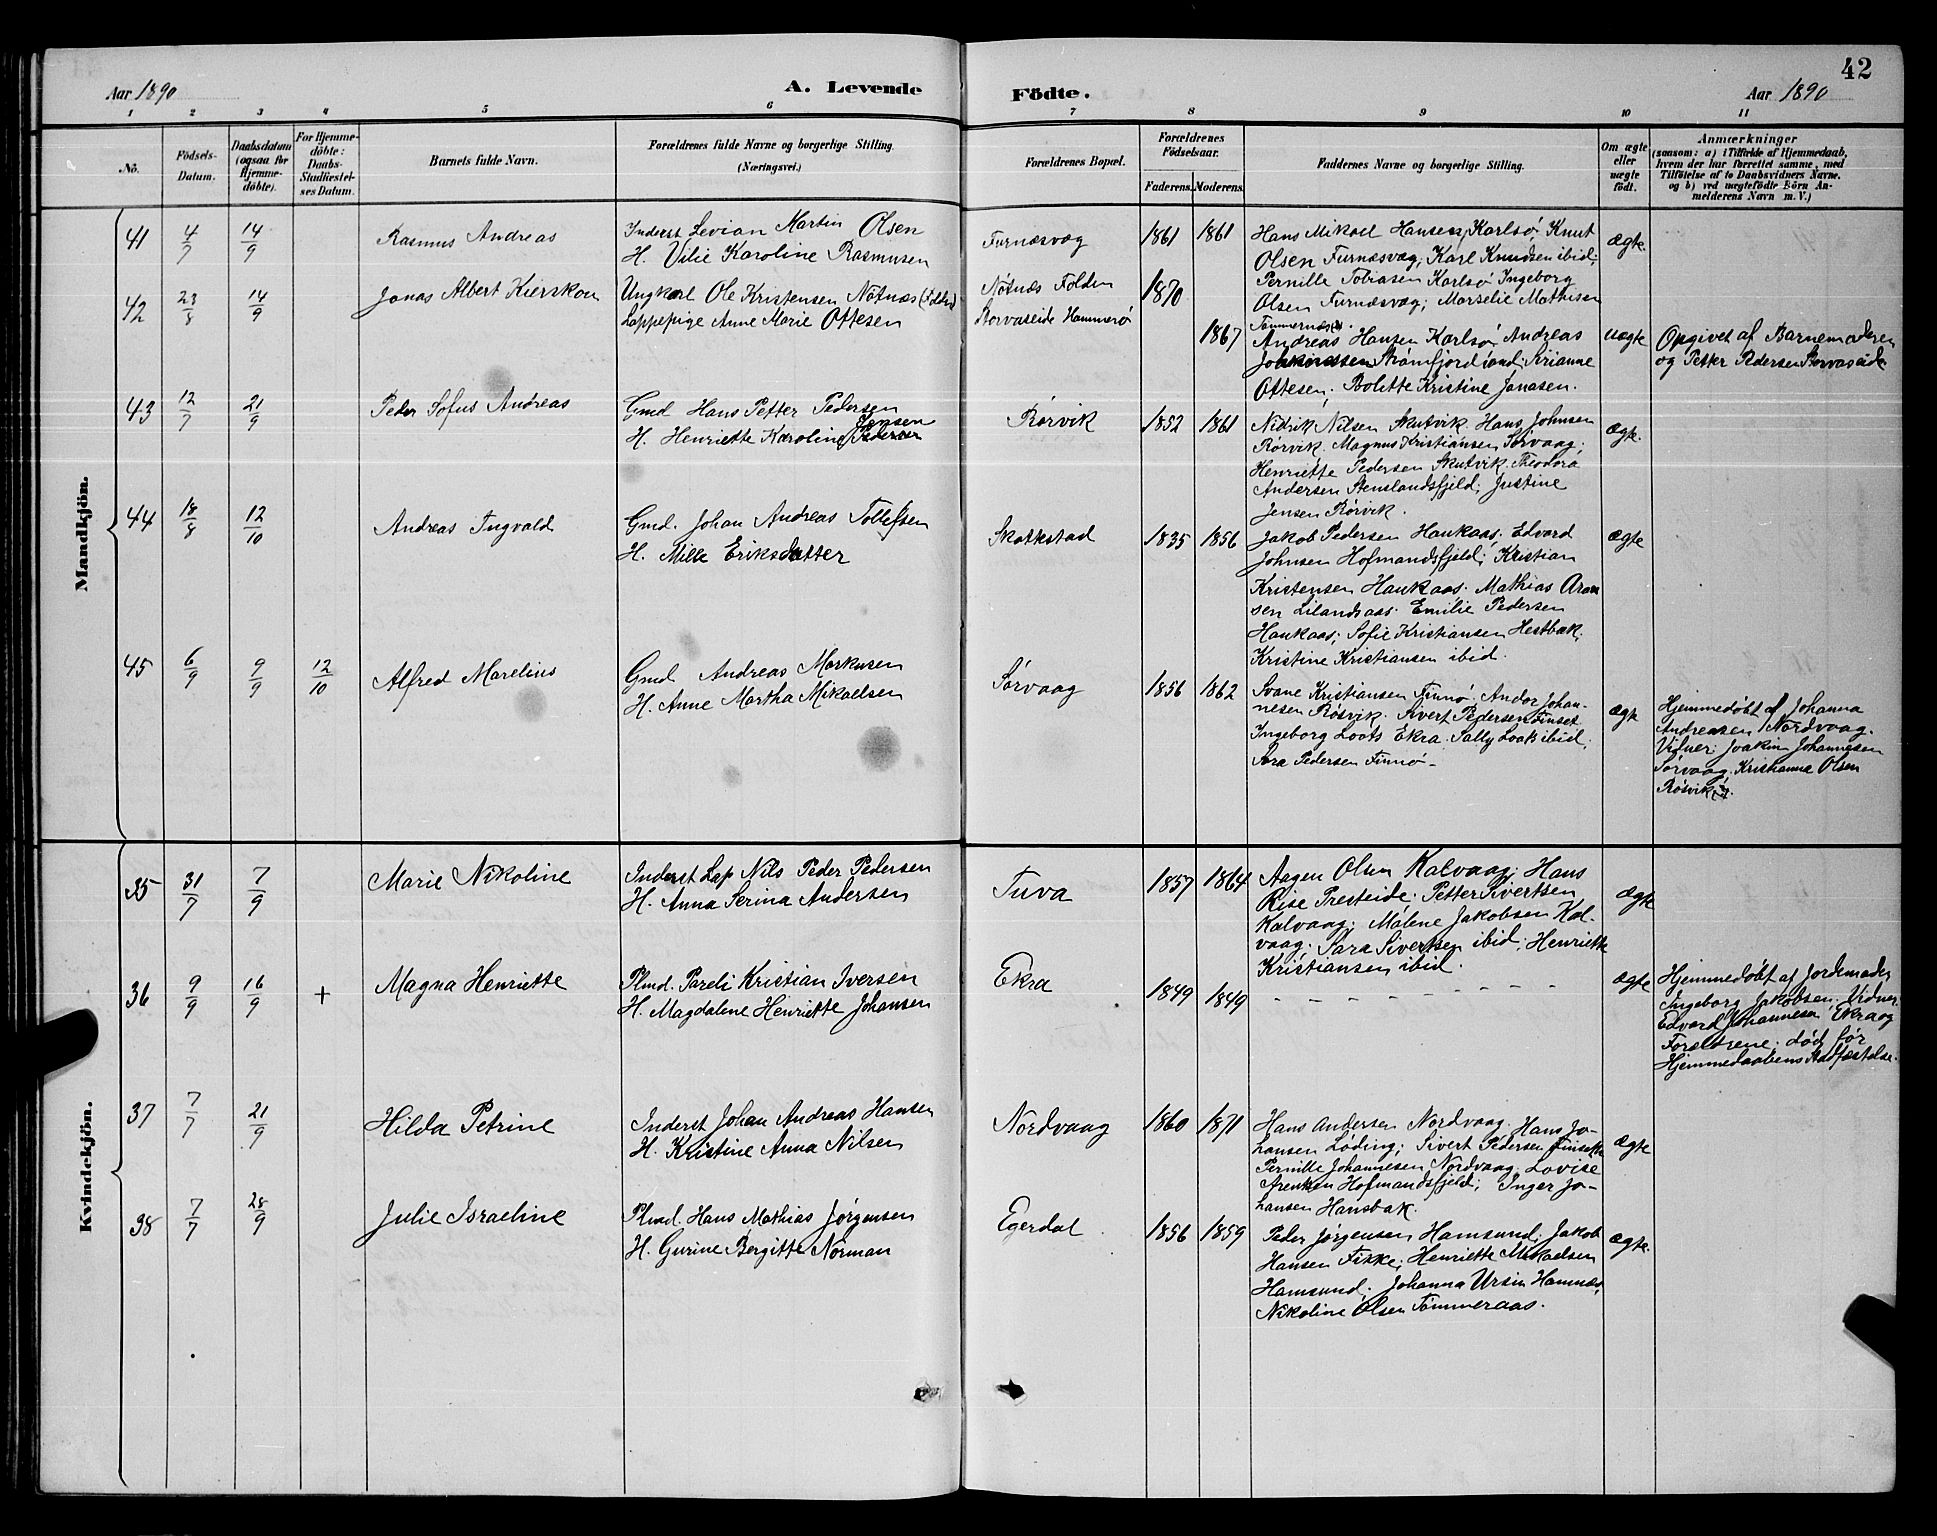 42
Aar 1890
A. Levende
Födte.
Aar 1890
1 2 3 4 5 6 7 8 9 10 11
No.
Födsels-
Datum.
Daabsdatum
(ogsaa for
Hjemme-
döbte).
For Hjemme-
döbte:
Daabs-
Stadfæstel-
ses Datum.
Barnets fulde Navn.
Forældrenes fulde Navne og borgerlige Stilling.
(Næringsvei.)
Forældrenes Bopæl.
Forældrenes
Födselsaar.
Faderens. Moderens.
Faddernes Navne og borgerlige Stilling.
Om ægte
eller
uægte
födt.
Anmærkninger
(saasom: a) i Tilfælde af Hjemmedaab,
hvem der har forrettet samme, med
Tilföielse af to Daabsvidners Navne.
og b) ved uægtefödte Börn An-
melderens Navn m. V.)
Mandkjön.
41 4/7 14/9
Rasmus Andreas
Inderst Levian Martin Olsen
H. Vilie Karoline Rasmusen
Furnæsvæg
1861 1861
Hans Mikael Hansen, Karlsø, Knut
Olsen Furnæsvæg; Karl Knudsen ibid;
Pernille Tobiasen Karlsø Ingeborg
Olsen Furnæsvæg; Marselie Mathisen
Tømmernæs.
ægte.
42 23/8 14/9
Jonas Albert Kierskou
Ungkarl Ole Kristensen Nøtnæs (Folden)
Lappepige Anne Marie Ottesen
Nøtnæs Folden
Storvaseide Hammerø
1870
1867
Andreas Hansen Karlsø Andreas
Strømfjord; Sirianne
Ottesen; Bolette Kristine Jonasen.
uægte
Opgivet af Barnemoderen
og Petter Pedersen Storvaseide
43 12/7 21/9
Peder Sofus Andreas
Gmd Hans Petter Pedersen
Jensen
H. Henriette Karoline Pedersen
Rørvik
1852 1861
Nidrik Nilsen Skutvik. Hans Johnsen
Rørvik. Magnus Kristiansen Sørvaag;
Henriette Pedersen Skutvik. Theodora
Andersen Stenslandsfjeld; Justine
Jensen Rørvik.
ægte.
44 18/8 12/10
Andreas Ingvald
Gmd. Johan Andreas Tollefsen
H. Milla Eriksdatter
Skotkstad
1835 1856
Jakob Pedersen Haukaas; Edvard
Johnsen Hofmandsfjeld; Kristian
Kristensen Haukaas. Mathias Aron
sen Lilandsaas. Emilie Pedersen
Haukaas; Sofie Kristiansen Hestbak.
Kristine Kristiansen ibid.
ægte
45 6/9 9/9 12/10
Alfred Marelius
Gmd Andreas Markusen
H. Anne Martha Mikaelsen
Sørvaag
1856 1862
Svane Kristiansen Finnø. Andor Johan-
nesen Røsvik. Sivert Pedersen Finset
Ingeborg Loots Ekra. Sally Loots ibid.
Sara Pedersen Finnø-
ægte
Hjemmedøbt af Johanna
Andreasen Nordvaag.
Vidner: Joakim Johannesen
Sørvaag. Kristianna Olsen
Røsvik.
Kvindekjön.
35 31/7 7/9
Marie Nikoline
Inderst Lap Nils Peder Pedersen
H. Anna Serina Andersen
Tuva
1857 1864
Aagen Olsen Kalvaag; Hans
Rise Presteide; Petter Sivertsen
Kalvaag; Malene Jakobsen Kal-
vaag; Sara Sivertsen ibid; Henriette
Kristiansen ibid.
ægte
36 9/9 16/9 +
Magna Henriette
Plmd. Pareli Kristian Iversen
H. Magdalene Henriette Johansen
Ekra
1849 1849
- - - - - - - - - -
ægte
Hjemmedøbt af Jordemoder
Ingeborg Jakobsen. Vidner.
Edvard Johannesen Ekra og
Forældrene. Død før
Hjemmedaabens Stadfæstelse.
37 7/7 21/9
Hilda Petrine
Inderst Johan Andreas Hansen
H. Kristine Anna Nilsen
Nordvaag
1860 1871
Hans Andersen Nordvaag. Hans Jo-
hansen Løding; Sivert Pedersen Finset
Pernille Johannesen Nordvaag. Lovise
Hofmandsfjeld; Inger Jo-
hansen Hansbak.
ægte
38 7/7 28/9
Julie Israeline
Plmd. Hans Mathias Jørgensen
H. Gurine Bergitte Norman
Egerdal
1856 1859
Peder Jørgensen Hamsund; Jakob
Hansen Fikke; Henriette Mikaelsen
Hamsund; Johanna Ursin Hamnæs;
Nikoline Olsen Tømmeraas.
ægte.